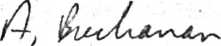 A, Buchanan